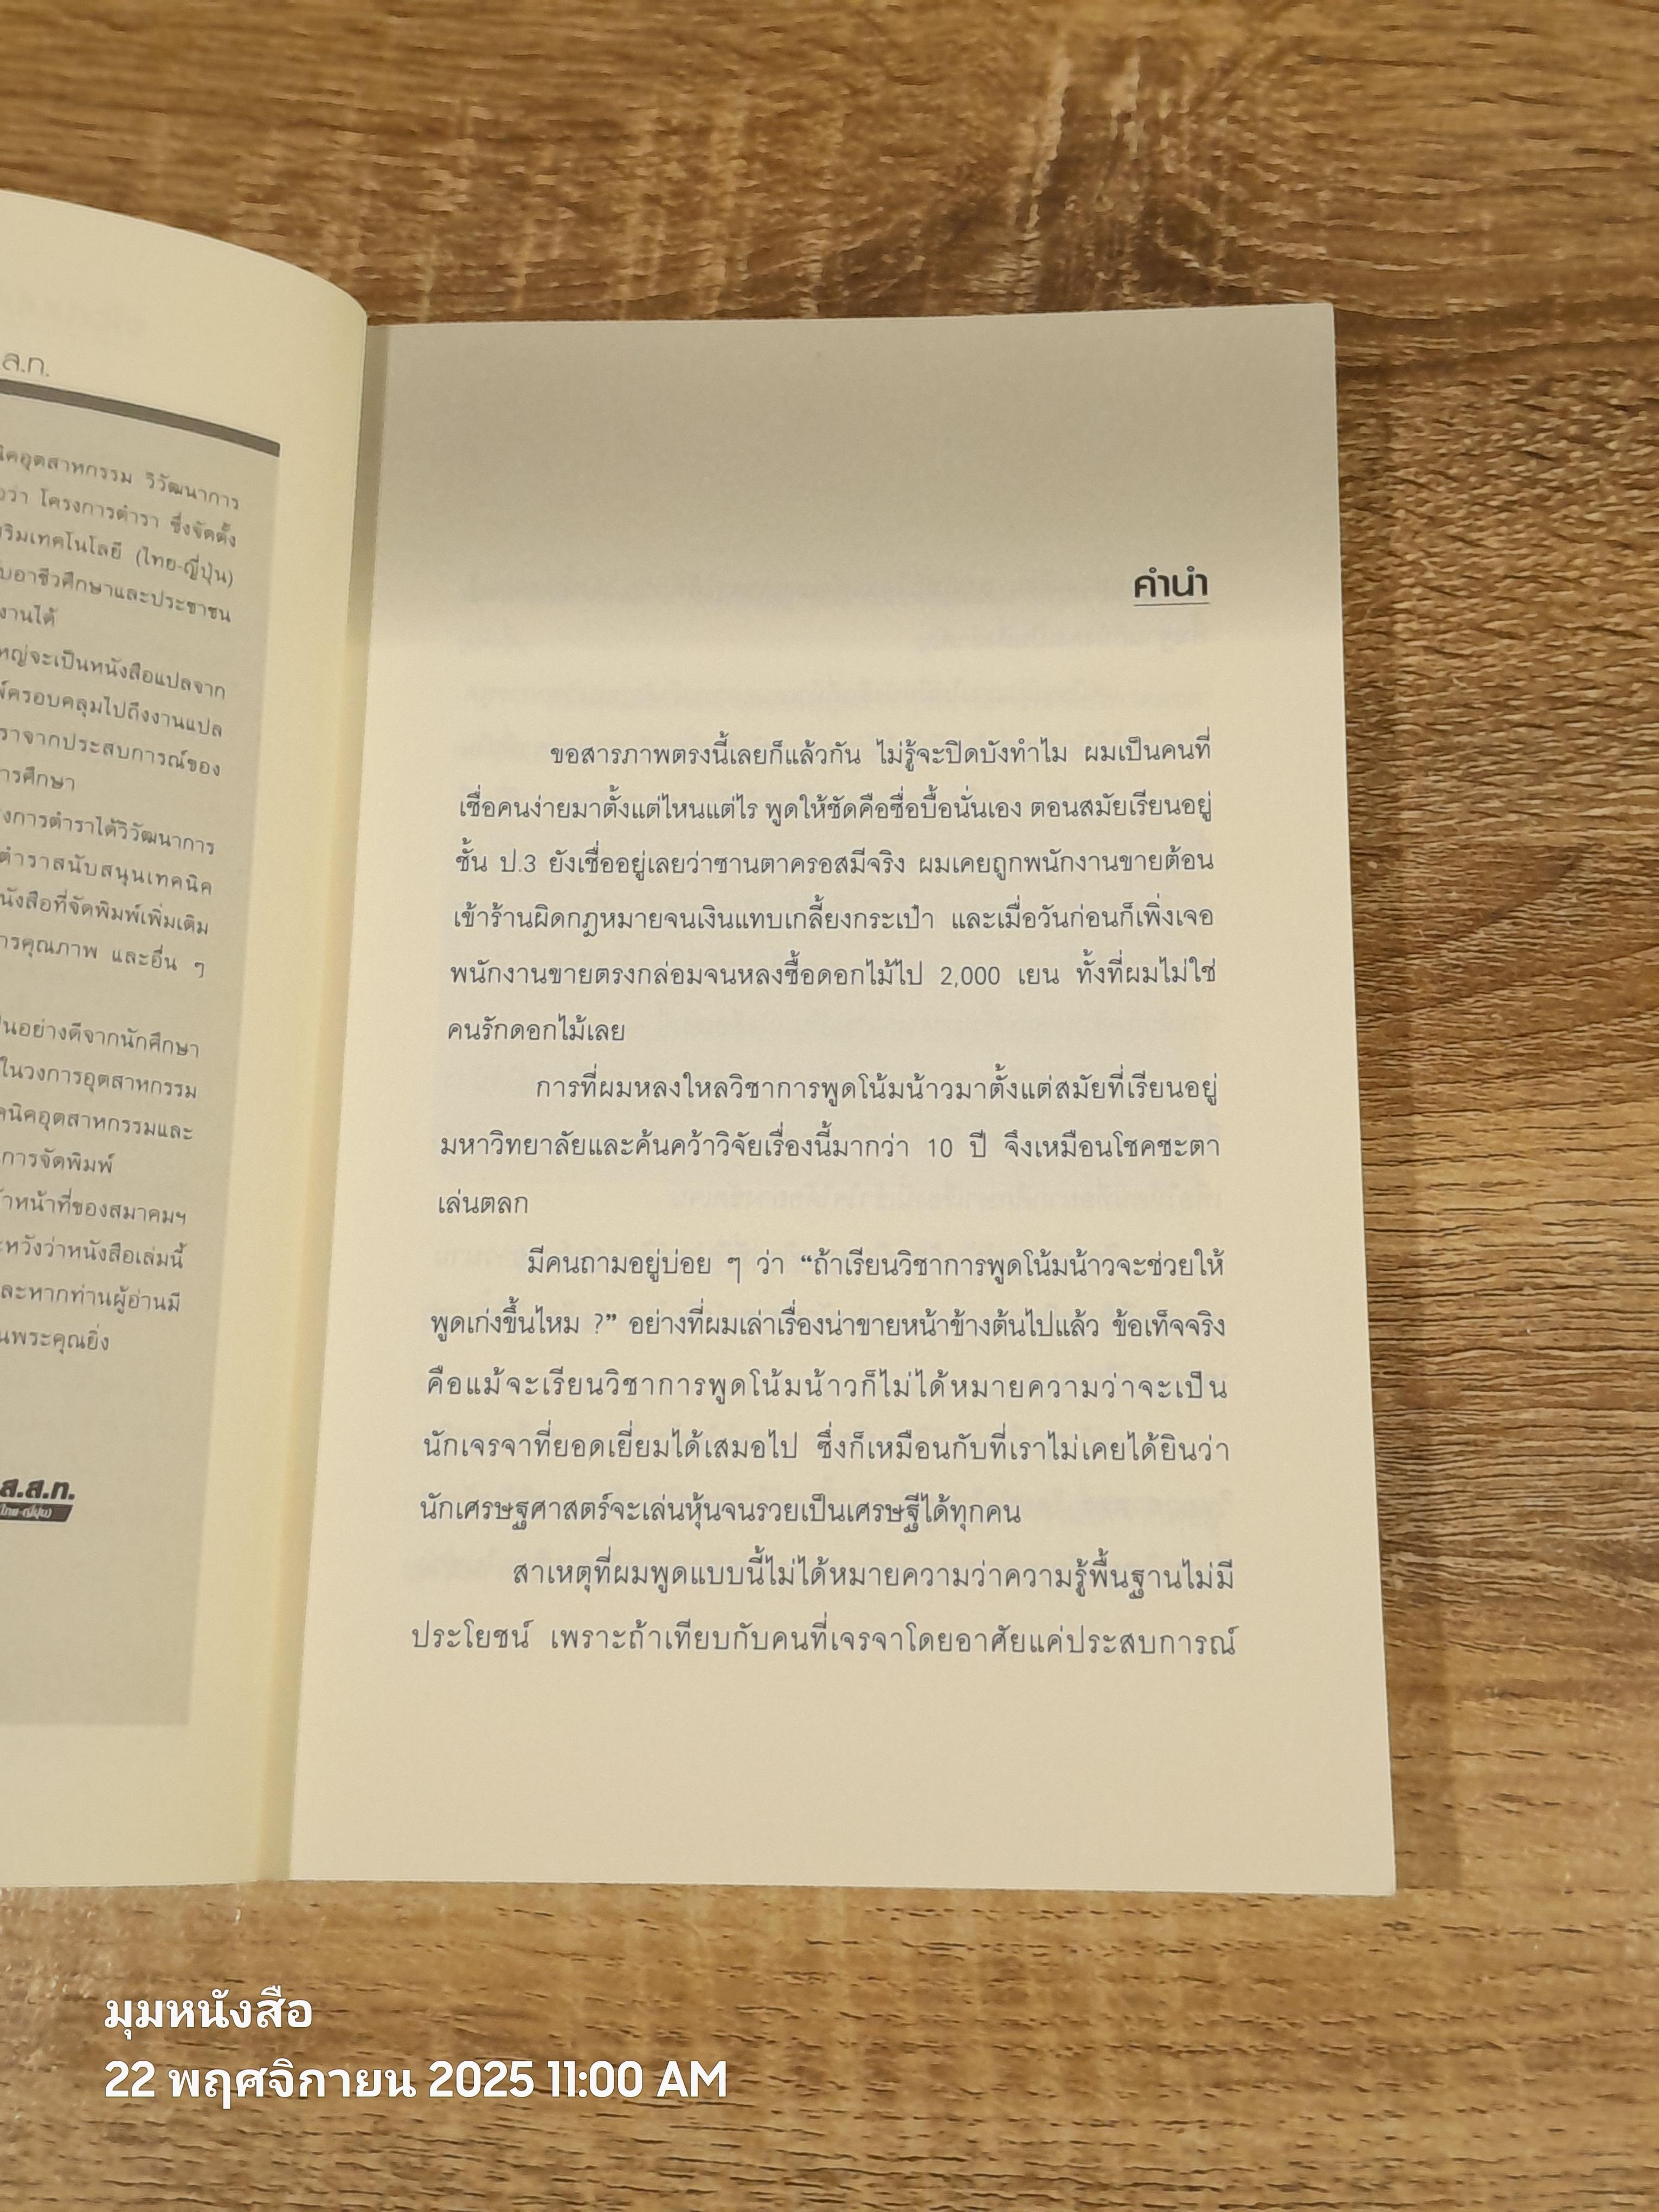 ส.ท.
นิคอุตสาหกรรม วิวัฒนาการ
ว่า โครงการตำรา ซึ่งจัดตั้ง
ริมเทคโนโลยี (ไทย-ญี่ปุ่น)
บอาชีวศึกษาและประชาชน
งานได้
หญ่จะเป็นหนังสือแปลจาก
ครอบคลุมไปถึงงานแปล
ราจากประสบการณ์ของ
ารศึกษา
งการตำราได้วิวัฒนาการ
ตำราสนับสนุนเทคนิค
นังสือที่จัดพิมพ์เพิ่มเติม
ารคุณภาพ และอื่น ๆ
ป็นอย่างดีจากนักศึกษา
ในวงการอุตสาหกรรม
คนิคอุตสาหกรรมและ
นการจัดพิมพ์
าหน้าที่ของสมาคมฯ
ะหวังว่าหนังสือเล่มนี้
ละหากท่านผู้อ่านมี
นพระคุณยิ่ง
ส.ส.ท.
ไทย-ญี่ปุ่น)
คำนำ
ขอสารภาพตรงนี้เลยก็แล้วกัน ไม่รู้จะปิดบังทำไม ผมเป็นคนที่
เชื่อคนง่ายมาตั้งแต่ไหนแต่ไร พูดให้ชัดคือซื่อบื้อนั่นเอง ตอนสมัยเรียนอยู่
ชั้น ป.3 ยังเชื่ออยู่เลยว่าซานตาครอสมีจริง ผมเคยถูกพนักงานขายต้อน
เข้าร้านผิดกฎหมายจนเงินแทบเกลี้ยงกระเป๋า และเมื่อวันก่อนก็เพิ่งเจอ
พนักงานขายตรงกล่อมจนหลงซื้อดอกไม้ไป 2,000 เยน ทั้งที่ผมไม่ใช่
คนรักดอกไม้เลย
การที่ผมหลงใหลวิชาการพูดโน้มน้าวมาตั้งแต่สมัยที่เรียนอยู่
มหาวิทยาลัยและค้นคว้าวิจัยเรื่องนี้มากว่า 10 ปี จึงเหมือนโชคชะตา
เล่นตลก
มีคนถามอยู่บ่อย ๆ ว่า “ถ้าเรียนวิชาการพูดโน้มน้าวจะช่วยให้
พูดเก่งขึ้นไหม ?” อย่างที่ผมเล่าเรื่องน่าขายหน้าข้างต้นไปแล้ว ข้อเท็จจริง
คือแม้จะเรียนวิชาการพูดโน้มน้าวก็ไม่ได้หมายความว่าจะเป็น
นักเจรจาที่ยอดเยี่ยมได้เสมอไป ซึ่งก็เหมือนกับที่เราไม่เคยได้ยินว่า
นักเศรษฐศาสตร์จะเล่นหุ้นจนรวยเป็นเศรษฐีได้ทุกคน
สาเหตุที่ผมพูดแบบนี้ไม่ได้หมายความว่าความรู้พื้นฐานไม่มี
ประโยชน์ เพราะถ้าเทียบกับคนที่เจรจาโดยอาศัยแค่ประสบการณ์
มุมหนังสือ
22 พฤศจิกายน 2025 11:00 AM